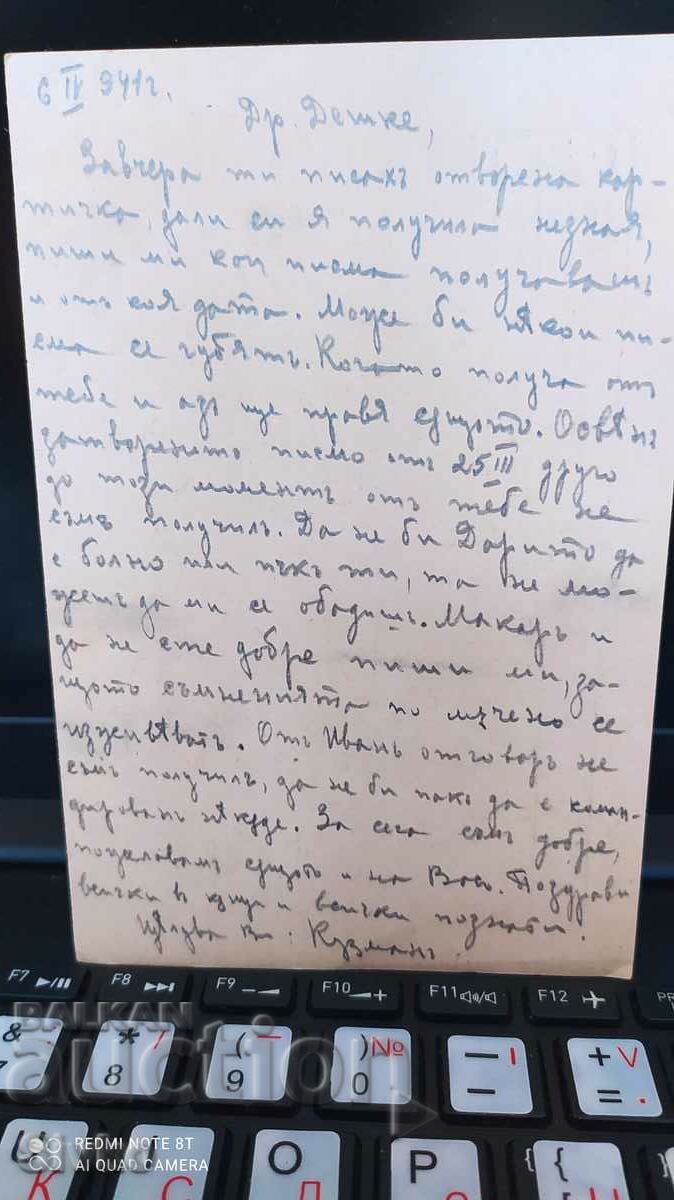 6 IV 941г.
Др. Дешке,
Завчера ти писахъ отворена кар-
тичка, дали си я получила незная,
пиши ми кои писма получавашъ
и отъ коя дата. Може би нѣкои пи-
сма се губятъ. Когато получа отъ
тебе и азъ ще правя сѫщото. Освѣнъ
затворенито писмо отъ 25 III друго
до този моментъ отъ тебе не
съмъ получилъ. Да не би Дарито да
е болно или пъкъ ти, та не мо-
жешъ да ми се обадишъ. Макаръ и
да не сте добре пиши ми, за-
щото съмненията по мѫчено се
изживѣватъ. Отъ Иванъ отговоръ не
съмъ получилъ, да не би пакъ да е коман-
дированъ нѣкѫде. За сега съмъ добре,
пожелавамъ сѫщото и на Васъ. Поздрави
всички в кѫщи и всички познати.
Цѣлува Ви: Кузманъ
F7 F8 F9 F10 F11 F12
& * / ( — ) № — I + V
8 9 0 - = .
BALKAN
auction
REDMI NOTE 8T
AI QUAD CAMERA
U I O P { [
К С Д